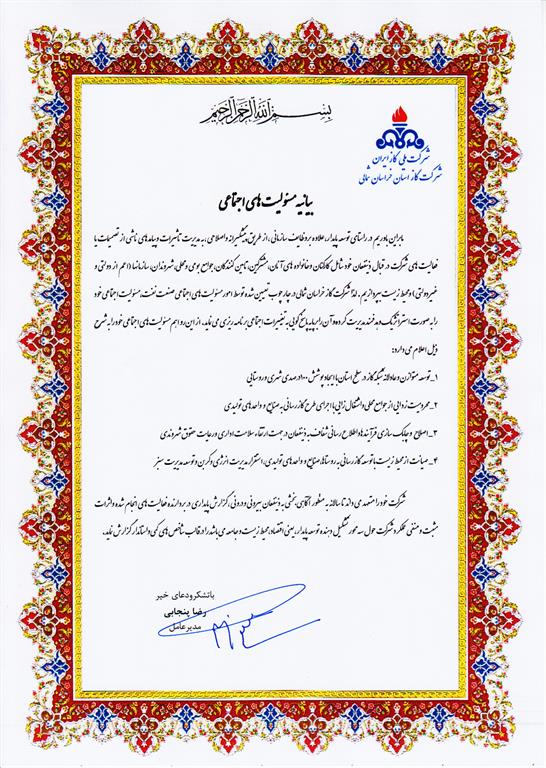 بسم الله الرحمن الرحیم
شرکت ملی گاز ایران
شرکت گاز استان خراسان شمالی
بیانیه مسئولیت های اجتماعی
ما بر این باوریم در راستای توسعه پایدار، علاوه بر وظایف سازمانی، از طریق پیشگیرانه و اصلاحی، به مدیریت تاثیرات و پیامدهای ناشی از تصمیمات یا
فعالیت های شرکت در قبال ذینفعان خود شامل کارکنان و خانواده های آنان، مشترکین، تامین کنندگان، جوامع بومی و محلی، شهروندان، سازمانها (اعم از دولتی و
غیردولتی) و محیط زیست بپردازیم. لذا شرکت گاز خراسان شمالی در چارچوب تعیین شده توسط امور مسئولیت های اجتماعی صنعت نفت، مسئولیت اجتماعی خود
را به صورت استراتژیک و هدفمند مدیریت کرده و آن را بر پایه پاسخ گویی به تغییرات اجتماعی برنامه ریزی می نماید. از این رو اهم مسئولیت های اجتماعی خود را به شرح
ذیل اعلام می دارد:
۱_ توسعه متوازن و عادلانه شبکه گاز در سطح استان با ایجاد پوشش ۱۰۰ درصدی شهری و روستایی
۲_ محرومیت زدایی از جوامع محلی و اشتغال زایی با اجرای طرح گازرسانی به صنایع و واحدهای تولیدی
۳_ اصلاح و چابک سازی فرآیندها و اطلاع رسانی شفاف به ذینفعان در جهت ارتقاء سلامت اداری و رعایت حقوق شهروندی
۴_ صیانت از محیط زیست با توسعه گازرسانی به روستاها، صنایع و واحدهای تولیدی، استقرار مدیریت انرژی و کربن و توسعه مدیریت سبز
شرکت خود را متعهد می داند تا سالانه به منظور آگاهی بخشی به ذینفعان بیرونی و درونی، گزارش پایداری در بردارنده فعالیت های انجام شده و اثرات
مثبت و منفی عملکرد شرکت حول سه محور تشکیل دهنده توسعه پایدار، یعنی اقتصاد، محیط زیست و جامعه می باشد را در قالب شاخص های کمی و استاندارد گزارش نماید.
باتشکرودعای خیر
رضا پنجابی
مدیرعامل